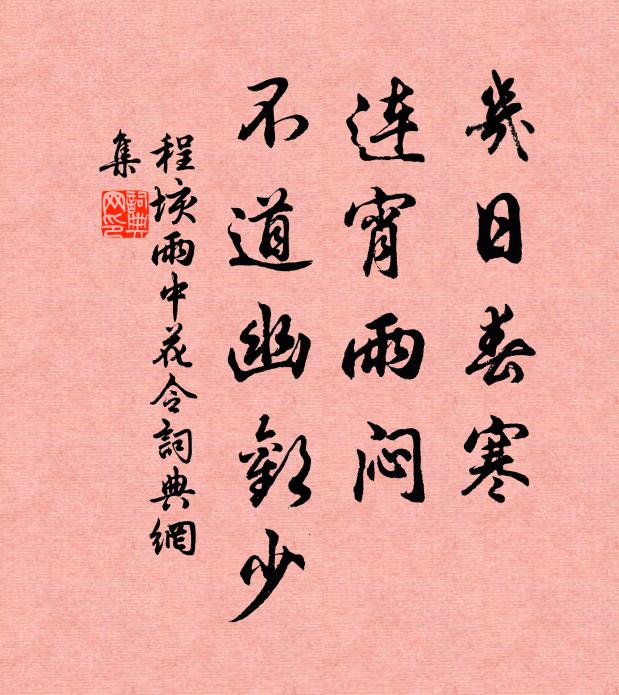 幾日春寒
連宵雨悶
不道幽歡少
程垓雨中花令詞典網
集
詞典網印